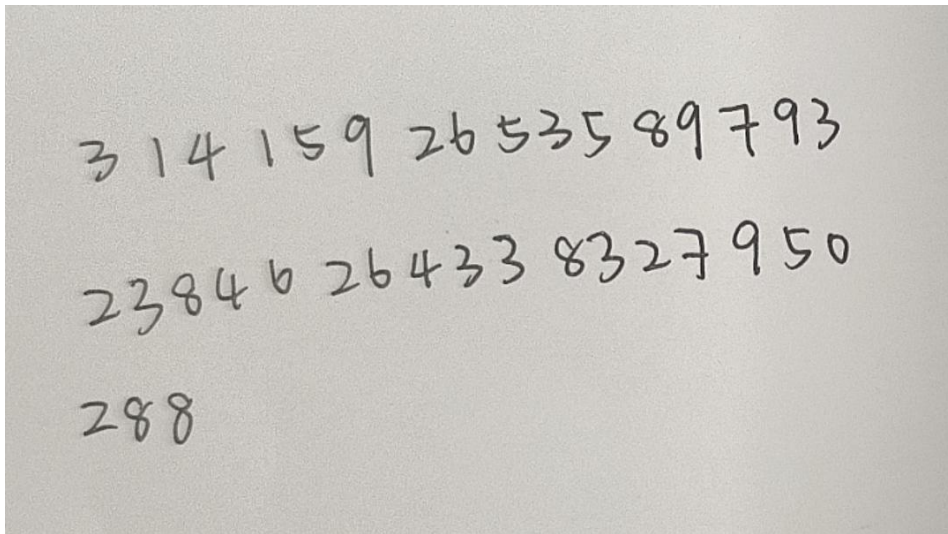 3 14 159 26 535 89 793
23846 26433 8327 950
288